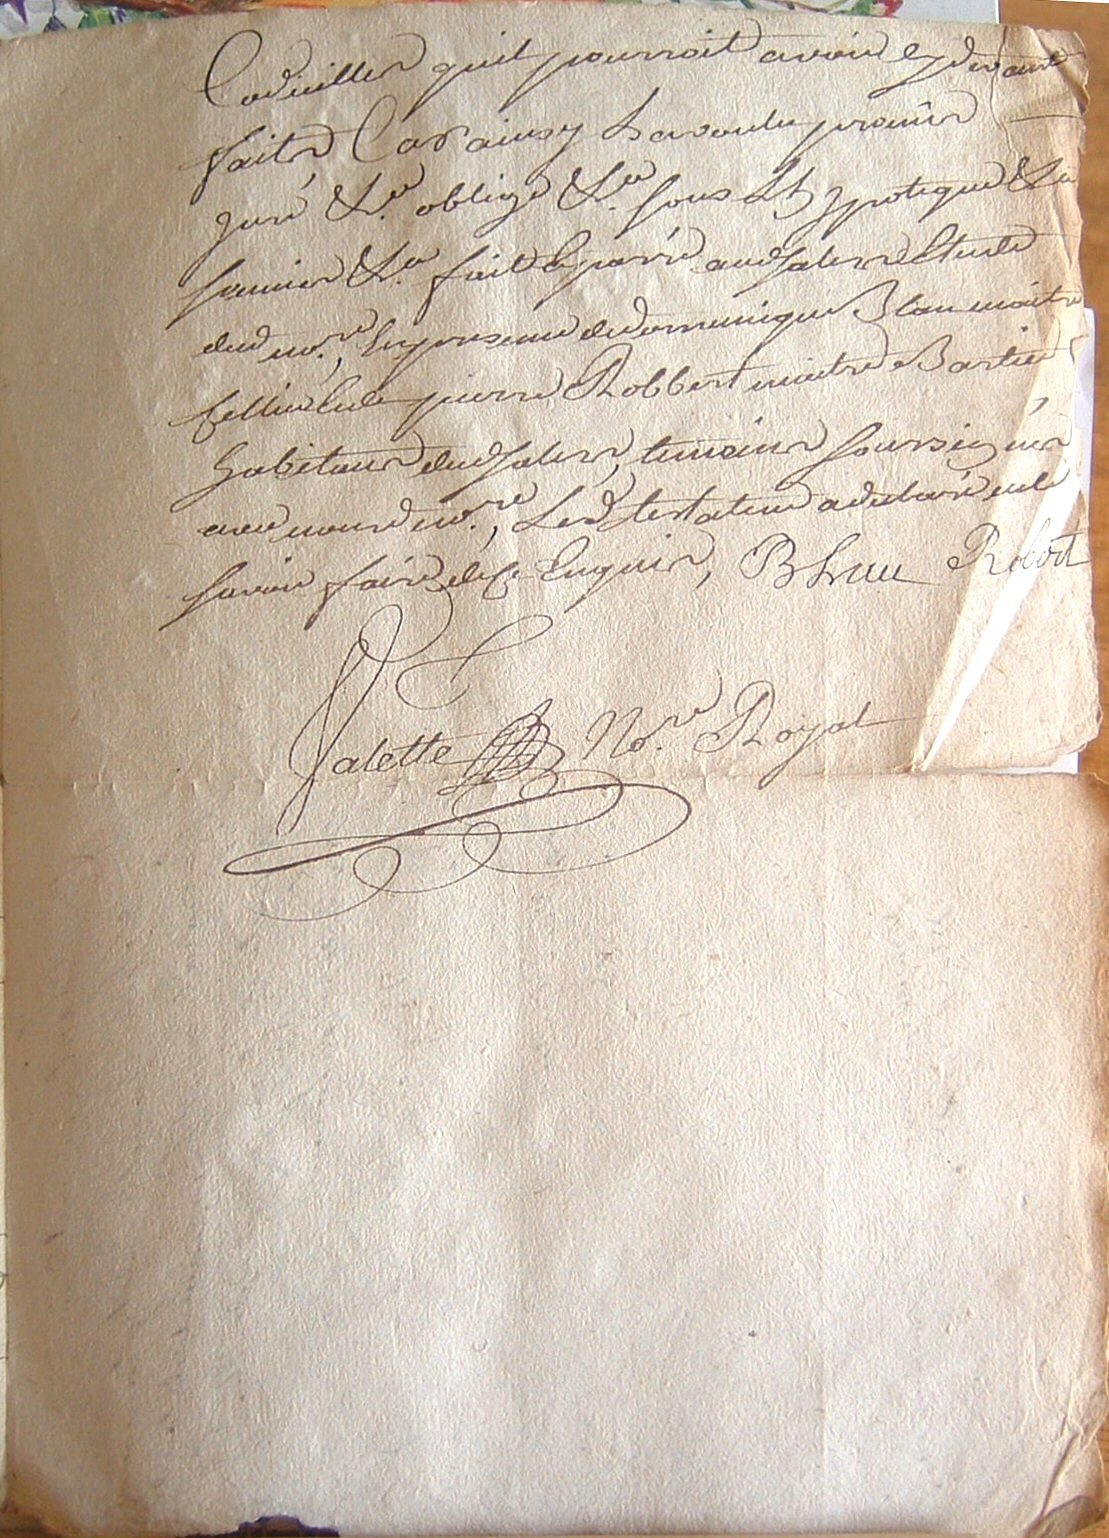 Codicilles quil pourroit avoir cy devant
faits Car ainsy La voulu promis
juré &c.a obligé &c.a sous Lhypoteque &c.a
soumis &c.a fait Et passé aud Salers Etude
dud no.re, En presence de dominique Blau maitre
Sellier Et de pierre Robbert maitre Bastier
habitans dud Salers, temoins soussignés
avec nous no.re, Led testateur a declaré ne le
savoir faire de ce Enquis, Blau Robert
Valette No.re Royal